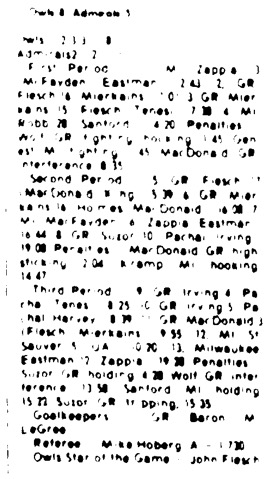 Owls 8 Admirals 5
Owls 2 3 3 8
Admirals 2 2
First Period M Zappia 3
McFayden Eastman 2:43 2, GR
Flesch 16 Mierkains 1:01 3 GR Mier
kains 15 Flesch Tenesi 7:38 4 Mi
Robb 28 Sanford 4:20 Penalties
Wolf GR fighting holding 1:45 Gen
est M fighting 1:45 MacDonald GR
interference 8:35
Second Period 5 GR Flesch 17
MacDonald King 5:39 6, GR Mier
kains 16 Holmes MacDonald 16:08 7
Mi MacFayden 6 Zappia Eastman
16:44 8 GR Suzor 10 Pachal Irving
19:08 Penalties MacDonald GR high
sticking 2:04 Kramp Mi hooking
14:47
Third Period 9 GR Irving 4 Pa
chal Tenesi 8:25 10 GR Irving 5 Pa
chal Harvey 8:39 11 GR MacDonald 3
Flesch Mierkains 9:55 12, Mi St
Sauver 5 UA 10:20 13, Milwaukee
Eastman 12 Zappia 19:28 Penalties
Suzor GR holding 4:28 Wolf GR inter
ference 13:58 Sanford Mi holding
15:22 Suzor GR tripping, 15:35
Goalkeepers GR Baron M
LeGree
Referee Mike Hoberg A 1,730
Owls Star of the Game John Flesch